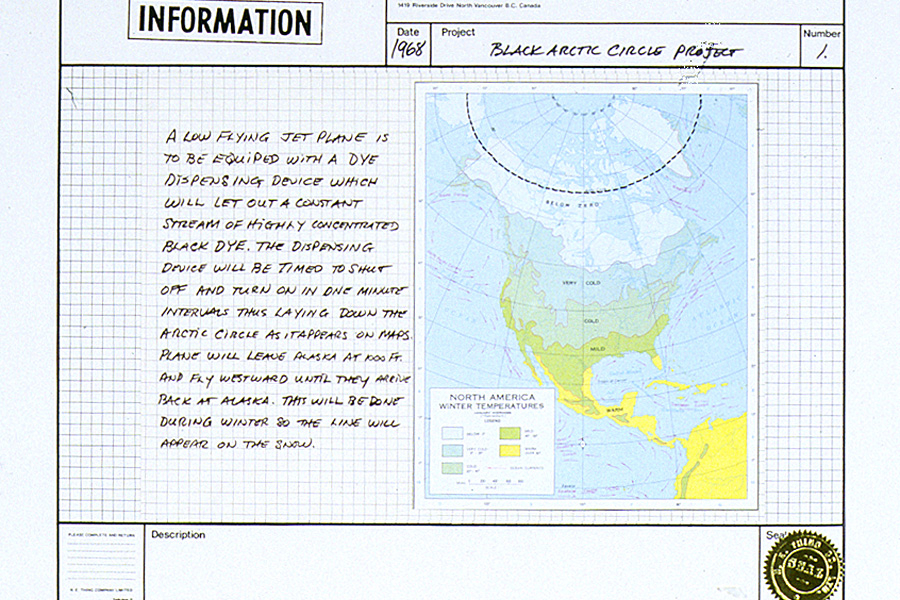 1419 Riverside Drive North Vancouver B.C. Canada
INFORMATION
Date
Project
Number
1968
BLACK ARCTIC CIRCLE PROJECT
1.
A LOW FLYING JET PLANE IS
TO BE EQUIPED WITH A DYE
DISPENSING DEVICE WHICH
WILL LET OUT A CONSTANT
STREAM OF HIGHLY CONCENTRATED
BLACK DYE. THE DISPENSING
DEVICE WILL BE TIMED TO SHUT
OFF AND TURN ON IN ONE MINUTE
INTERVALS THUS LAYING DOWN THE
ARCTIC CIRCLE AS IT APPEARS ON MAPS.
PLANE WILL LEAVE ALASKA AT 1000 FT.
AND FLY WESTWARD UNTIL THEY ARRIVE
BACK AT ALASKA. THIS WILL BE DONE
DURING WINTER SO THE LINE WILL
APPEAR ON THE SNOW.
BELOW ZERO
VERY COLD
COLD
MILD
WARM
NORTH AMERICA
WINTER TEMPERATURES
LEGEND
PLEASE COMPLETE AND RETURN
N. E. THING COMPANY LIMITED
Description
Seal
N. E. THING CO.
SEAL